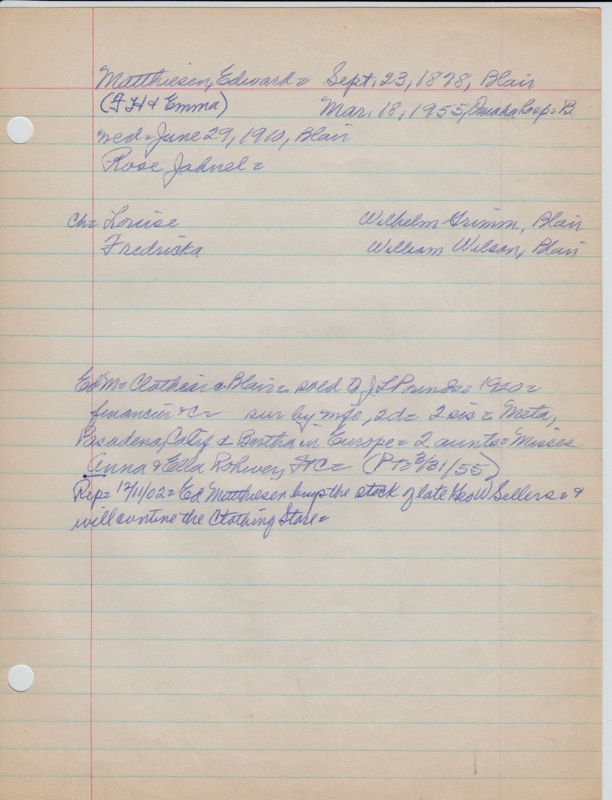 Matthiesen, Edward = Sept. 23, 1878, Blair
(F H & Emma) Mar. 18, 1955, Omaha hosp = B
wed = June 29, 1910, Blair
Rose Jahnel =
Ch = Louise Wilhelm Grimm, Blair
Fredricka William Wilson, Blair
Ed M = Clothier @ Blair = sold to J L Pounds = 1920 =
financier & C = sur by wife, 2d = 2 sis = Meta,
Pasadena, Calif & Bertha in Europe = 2 aunts = Misses
Anna & Ella Rohwer, Ft C = (P + 3/31/55)
Rep = 12/11/02 = Ed Matthiesen buys the stock of late Geo W Sellers = &
will contine the Clothing Store =